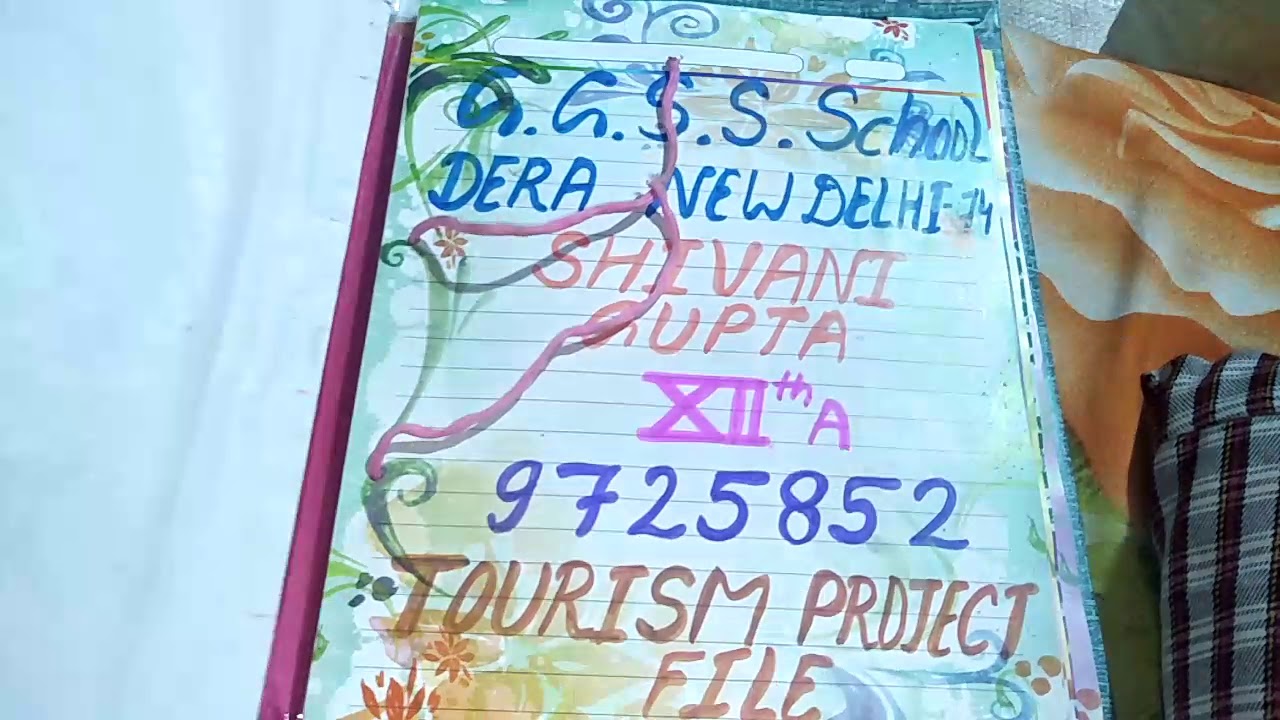 G.G.S.S.School
DERA NEW DELHI-74
SHIVANI
GUPTA
XIIth A
9725852
TOURISM PROJECT
FILE